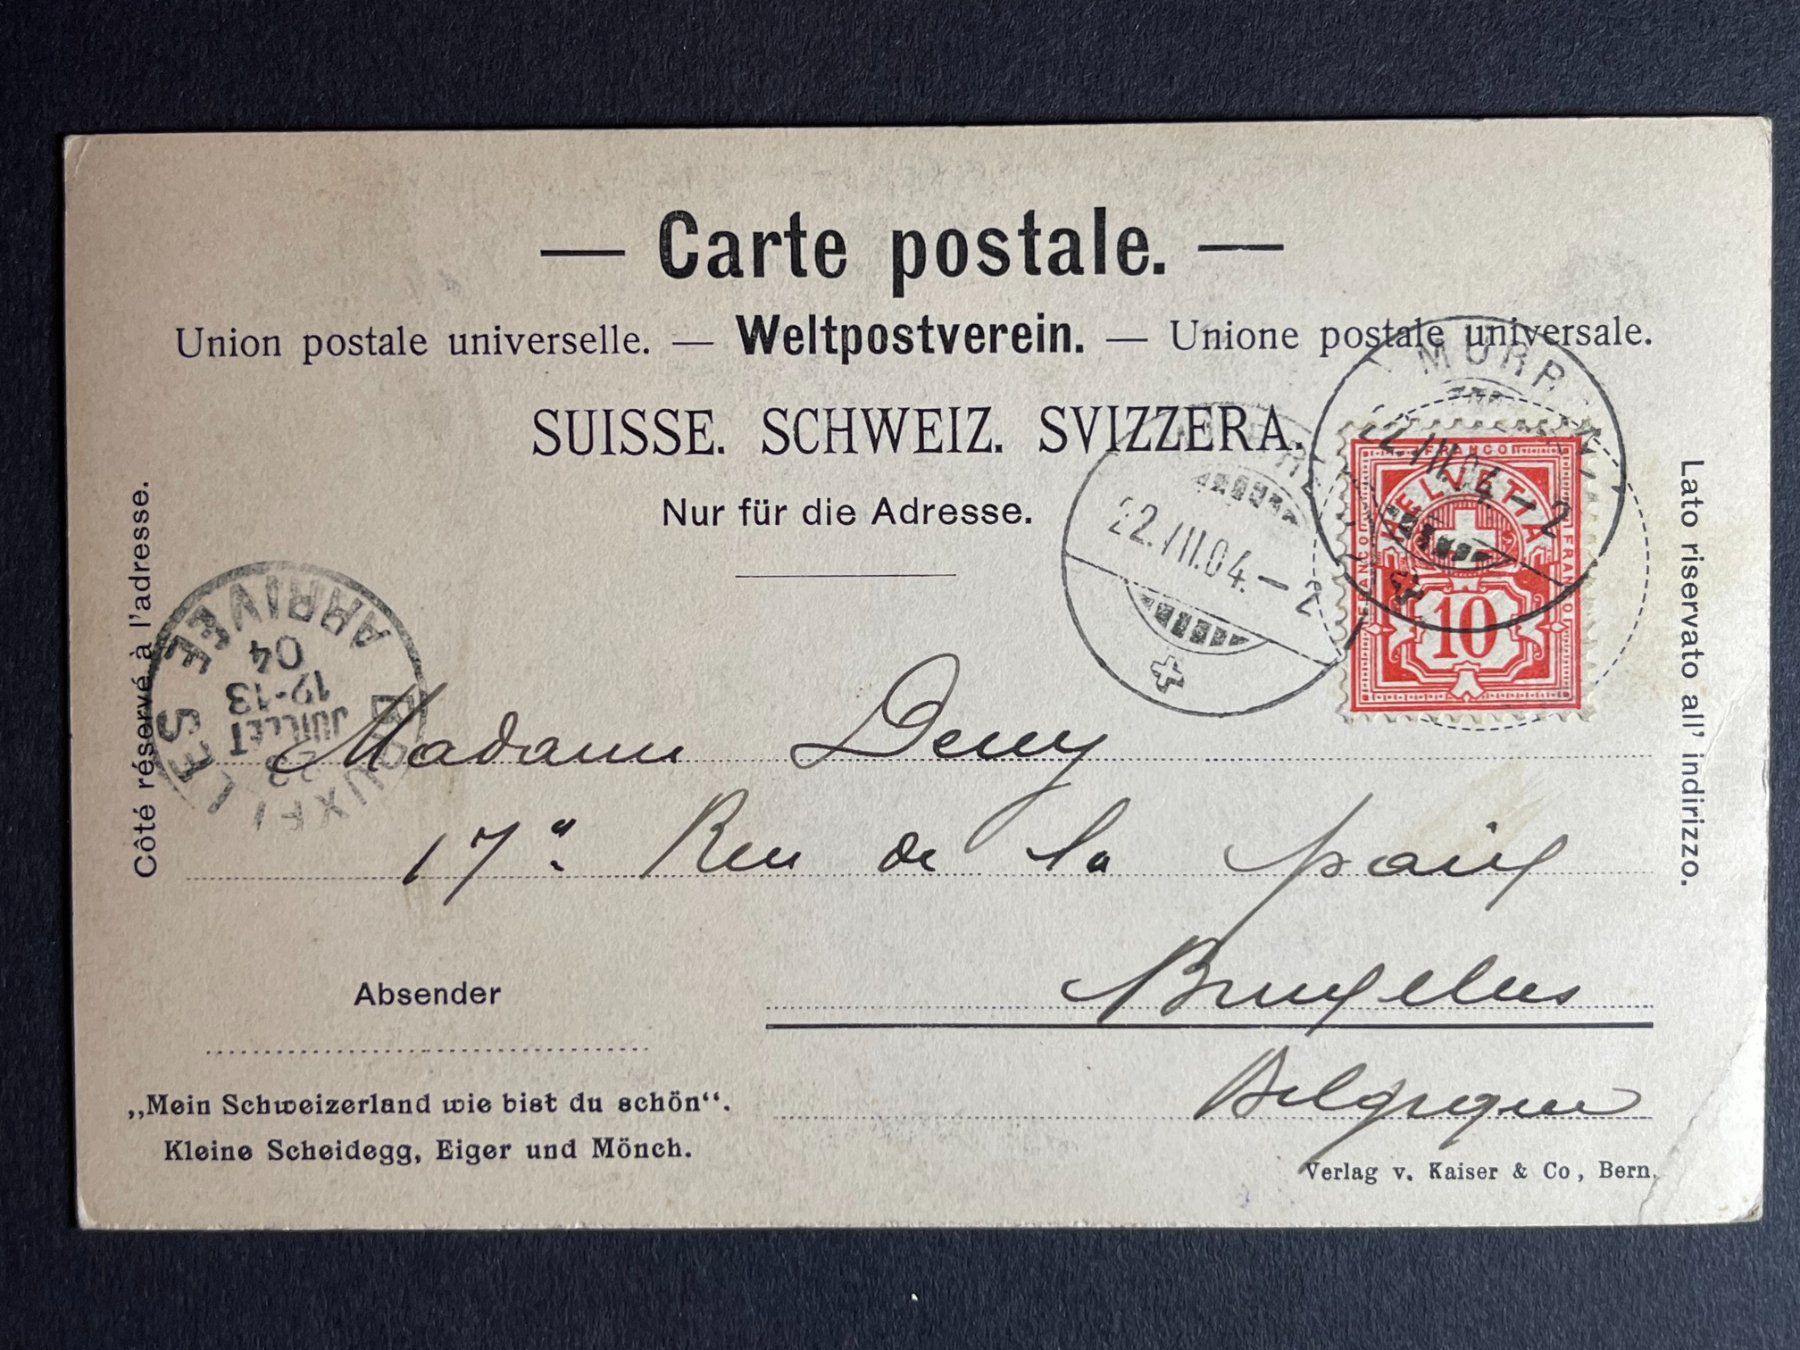 — Carte postale. —
Union postale universelle. — Weltpostverein. — Unione postale universale.
SUISSE. SCHWEIZ. SVIZZERA.
Nur für die Adresse.
Côté réservé à l'adresse.
Lato riservato all' indirizzo.
MÜRREN
22.VII.04.–2
22.VII.04–2
FRANCO
FRANCO
FRANCO
HELVETIA
10
BRUXELLES
ARRIVÉE
23
JUILLET
12-13
04
Madame
17a Rue de la paix
Bruxelles
Belgique
Absender
„Mein Schweizerland wie bist du schön“.
Kleine Scheidegg, Eiger und Mönch.
Verlag v. Kaiser & Co, Bern.